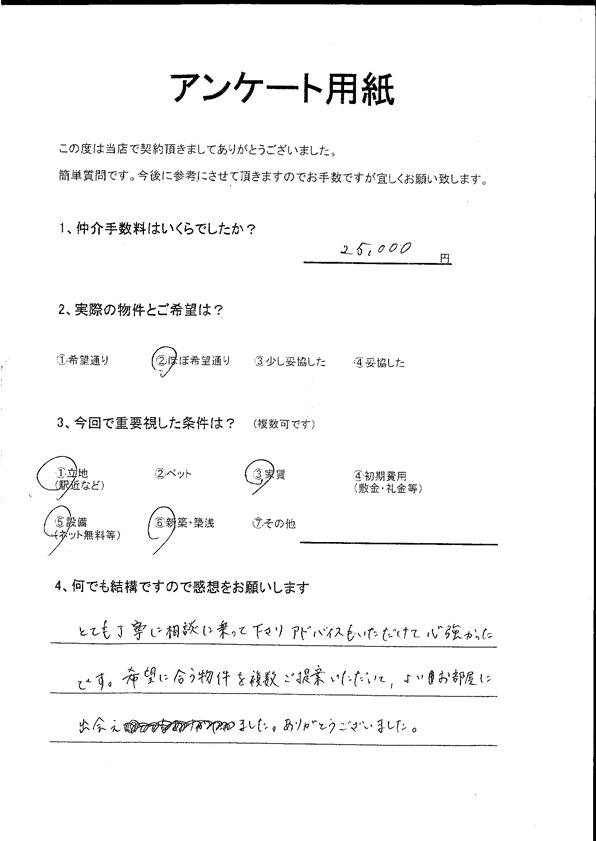 アンケート用紙
この度は当店で契約頂きましてありがとうございました。
簡単質問です。今後に参考にさせて頂きますのでお手数ですが宜しくお願い致します。
1、仲介手数料はいくらでしたか?
25,000 円
2、実際の物件とご希望は?
①希望通り ②ほぼ希望通り ③少し妥協した ④妥協した
3、今回で重要視した条件は? (複数可です)
①立地 ②ペット ③家賃 ④初期費用
(駅近など) (敷金・礼金等)
⑤設備 ⑥新築・築浅 ⑦その他
(ネット無料等)
4、何でも結構ですので感想をお願いします
とても丁寧に相談に乗って下さり アドバイスもいただけて心強かった
です。希望に合う物件を複数ご提案いただいて、よいお部屋に
出会えました。ありがとうございました。